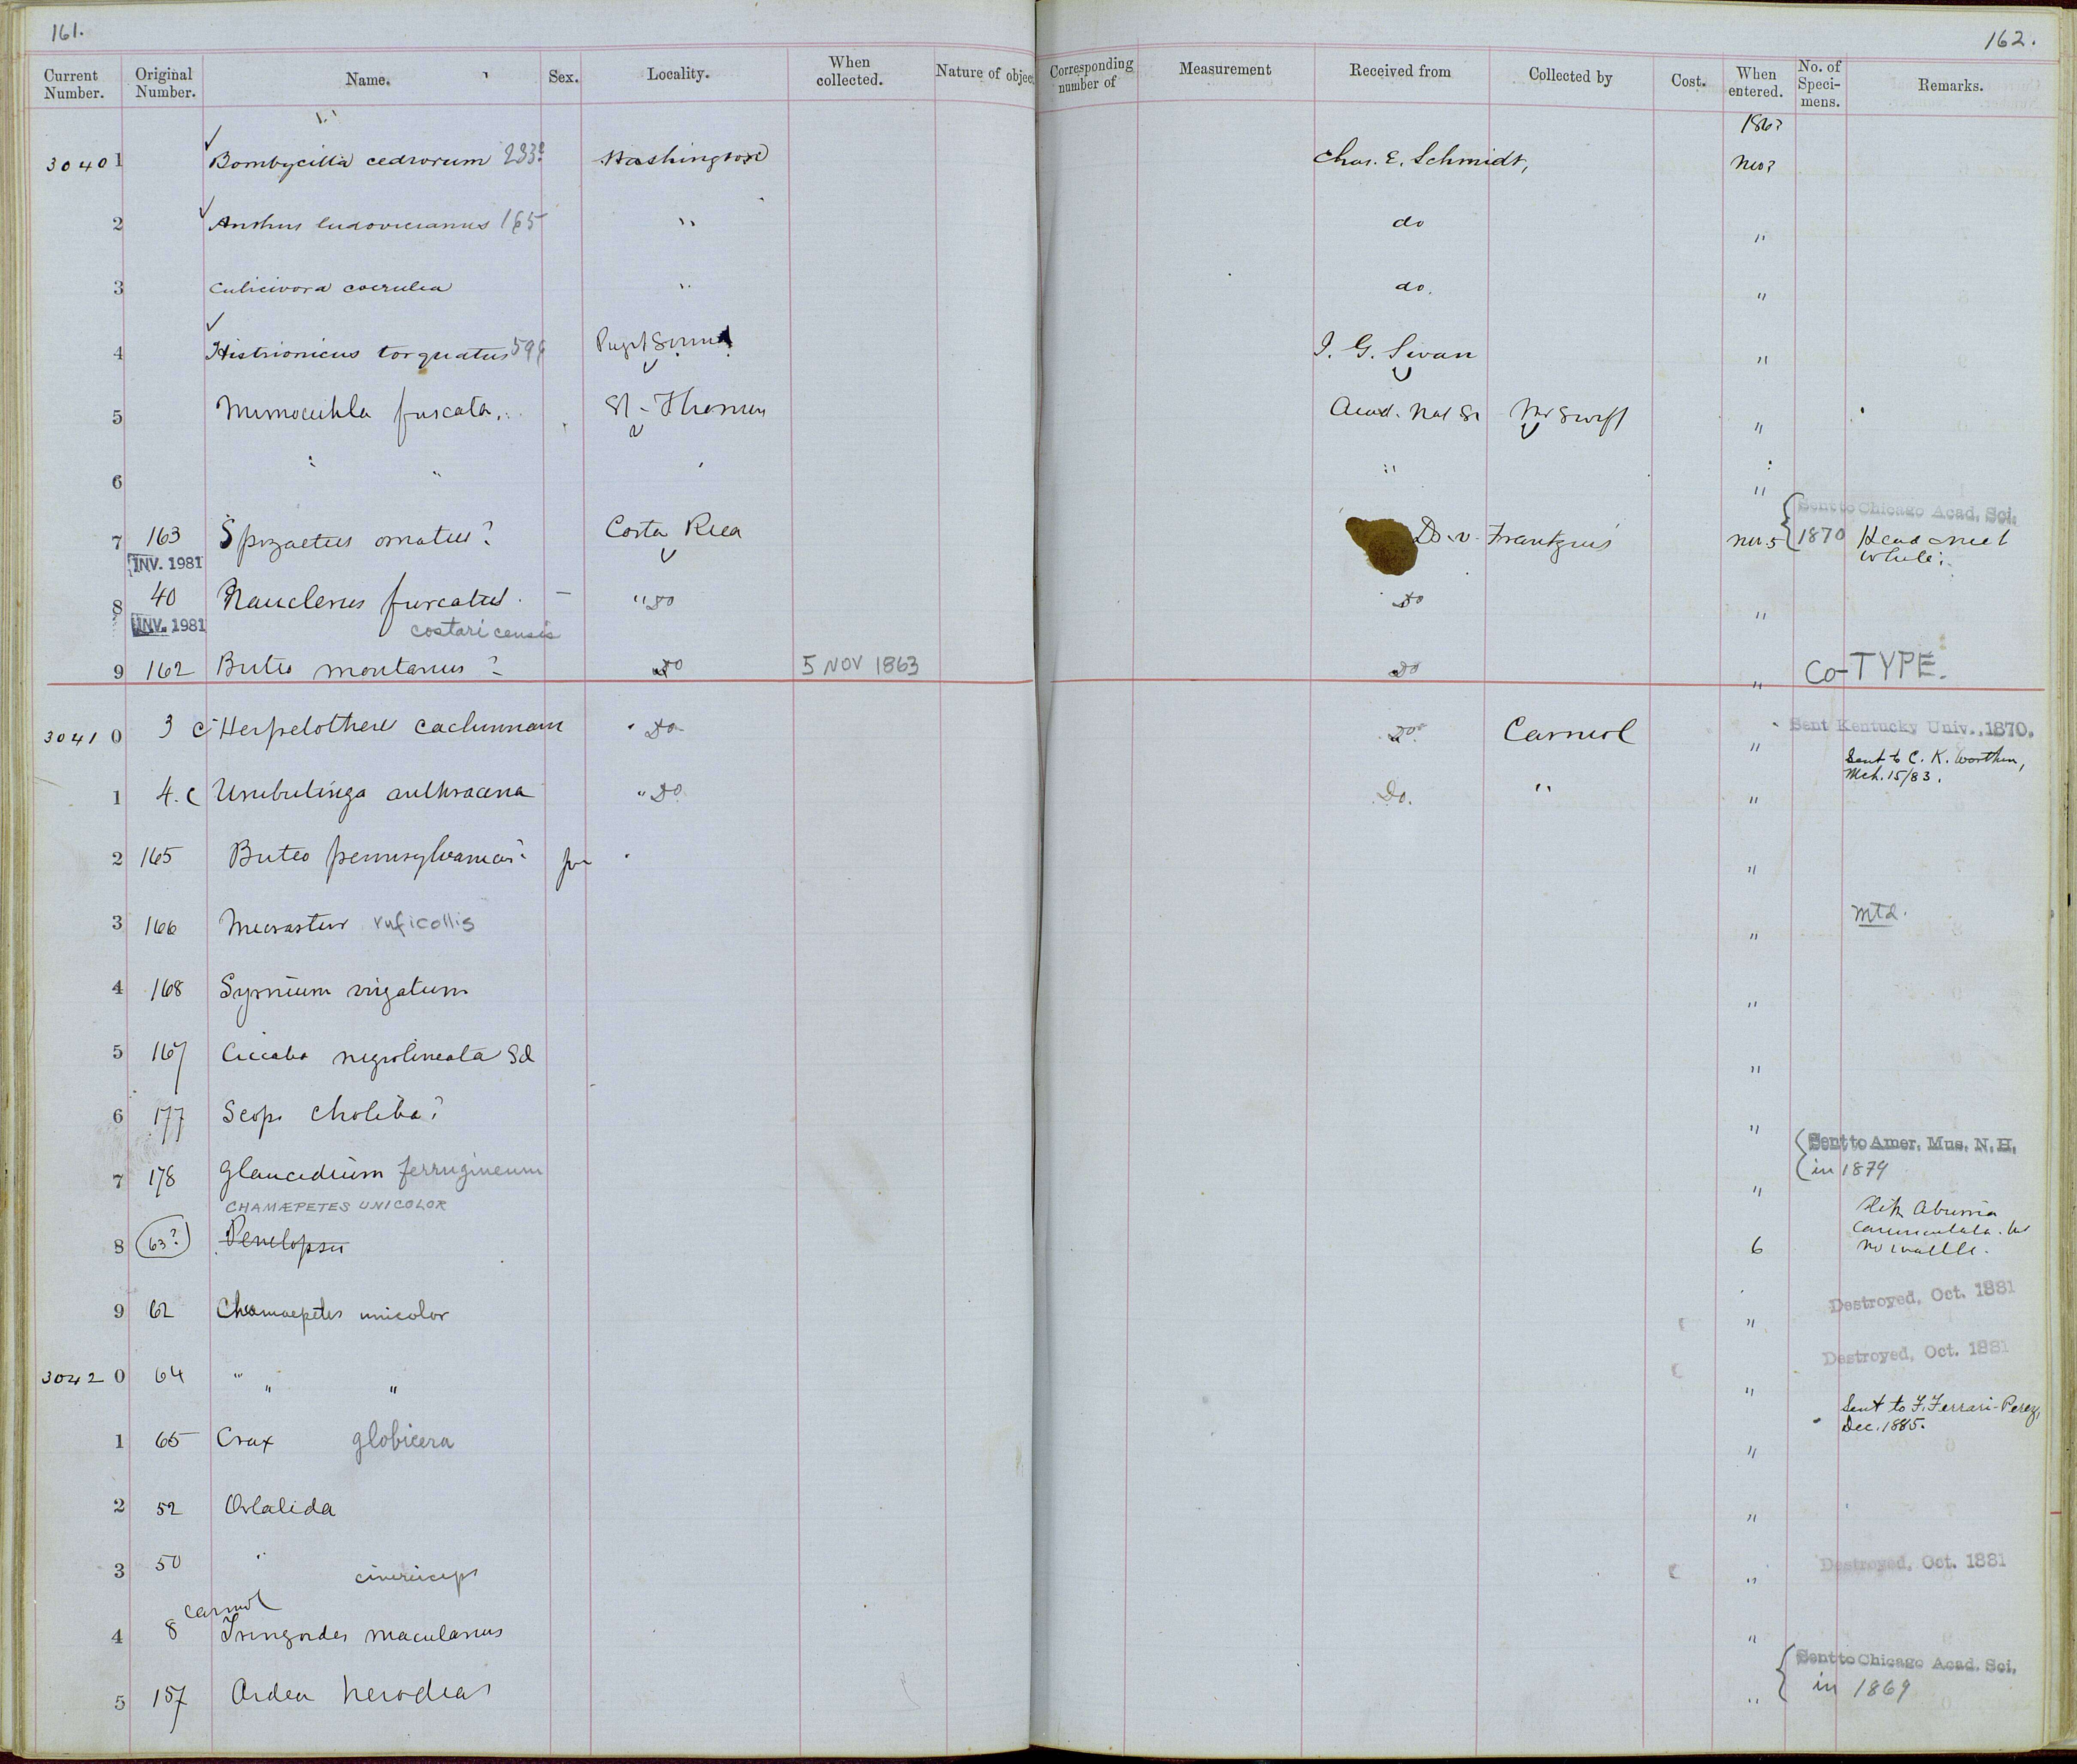 161.
162.
Current Number. Original Number. Name. Sex. Locality. When collected. Nature of objec Corresponding number of Measurement Received from Collected by Cost. When entered. No. of Speci-mens. Remarks.
186?
30401 Bombycilla cedrorum 233? Washington Chas. E. Schmidt,
2 Anthus ludovicianus 165 " do "
3 Culicivora coerulea " do. "
4 Histrionicus torquatus 596 Puget Sound J. G. Swan "
5 Mimocichla fuscata St. Thomas Acad. Nat Sc Mr Swift "
6 " " " " "
Sent to Chicago Acad. Sci.
7 163 Spizaetus ornatus? Costa Rica Dr. v. Frantzius Nov. 5 1870 Head & neck
INV. 1981 white.
8 40 Nauclerus furcatus. — " Do Do "
INV. 1981 costaricensis
9 162 Buteo montanus? Do 5 NOV 1863 Do " Co-TYPE.
30410 3 C Herpelothere cachinnans " Do Do Carmiol " Sent Kentucky Univ., 1870.
Sent to C. K. Worthen,
Mch. 15/83.
1 4. C Urubitinga anthracina " Do Do. " "
2 165 Buteo pennsylvanicus? "
3 166 Micrastur ruficollis " Mtd.
4 168 Syrnium virgatum "
5 167 Ciccaba nigrolineata Scl "
6 177 Scops choliba? "
Sent to Amer. Mus. N. H.
in 1879
7 178 Glaucidium ferrugineum "
CHAMÆPETES UNICOLOR
8 63? Penelopsis 6 Aburria
carunculata. but
no wattle.
9 62 Chamaepetes unicolor " Destroyed, Oct. 1881
30420 64 " " " Destroyed, Oct. 1881
Sent to F. Ferrari-Perez,
Dec. 1885.
1 65 Crax globicera "
2 52 Ortalida "
3 50 " cinereiceps " Destroyed, Oct. 1881
Carmiol
4 8 Tringoides macularius "
Sent to Chicago Acad. Sci.
5 157 Ardea herodias " in 1869